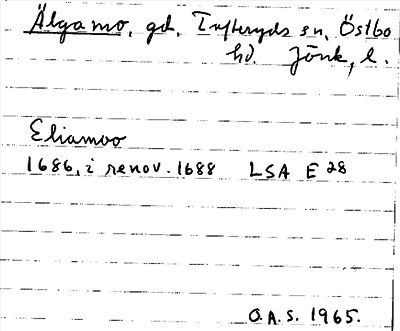 Älgamo, gd, Tofteryds sn, Östbo
hd. Jönk, l.
Eliamoo
1686, i renov. 1688 LSA E 28
O.A.S. 1965.